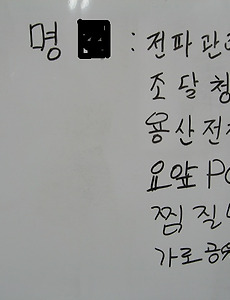 명 : 전파관
조달청
용산전
요앞 P
찜질
가로공